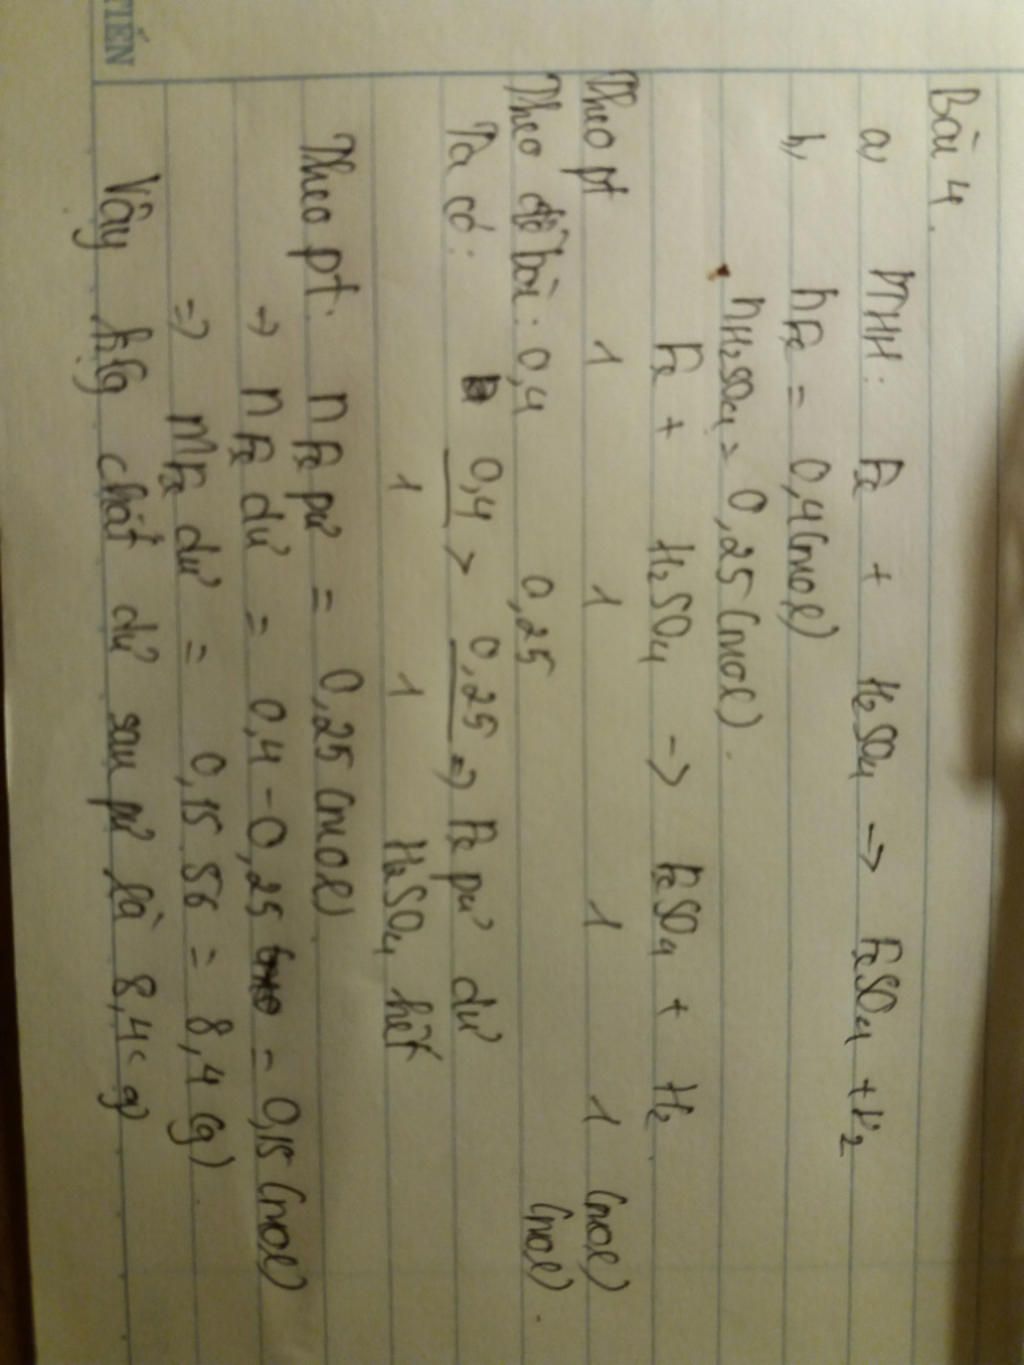 TIẾN
Bài 4.
a, PTHH: Fe + H₂SO₄ → FeSO₄ + H₂
b, nFe = 0,4 (mol)
nH₂SO₄ = 0,25 (mol).
Fe + H₂SO₄ → FeSO₄ + H₂
Theo pt 1 1 1 1 (mol)
Theo đề bài: 0,4 0,25 (mol).
Ta có: 0,4 > 0,25 => Fe pư dư
1 1 H₂SO₄ hết
Theo pt: nFe pư = 0,25 (mol)
→ nFe dư = 0,4 - 0,25 = 0,15 (mol)
=> mFe dư = 0,15.56 = 8,4 (g).
Vậy chất dư sau pư là 8,4 g